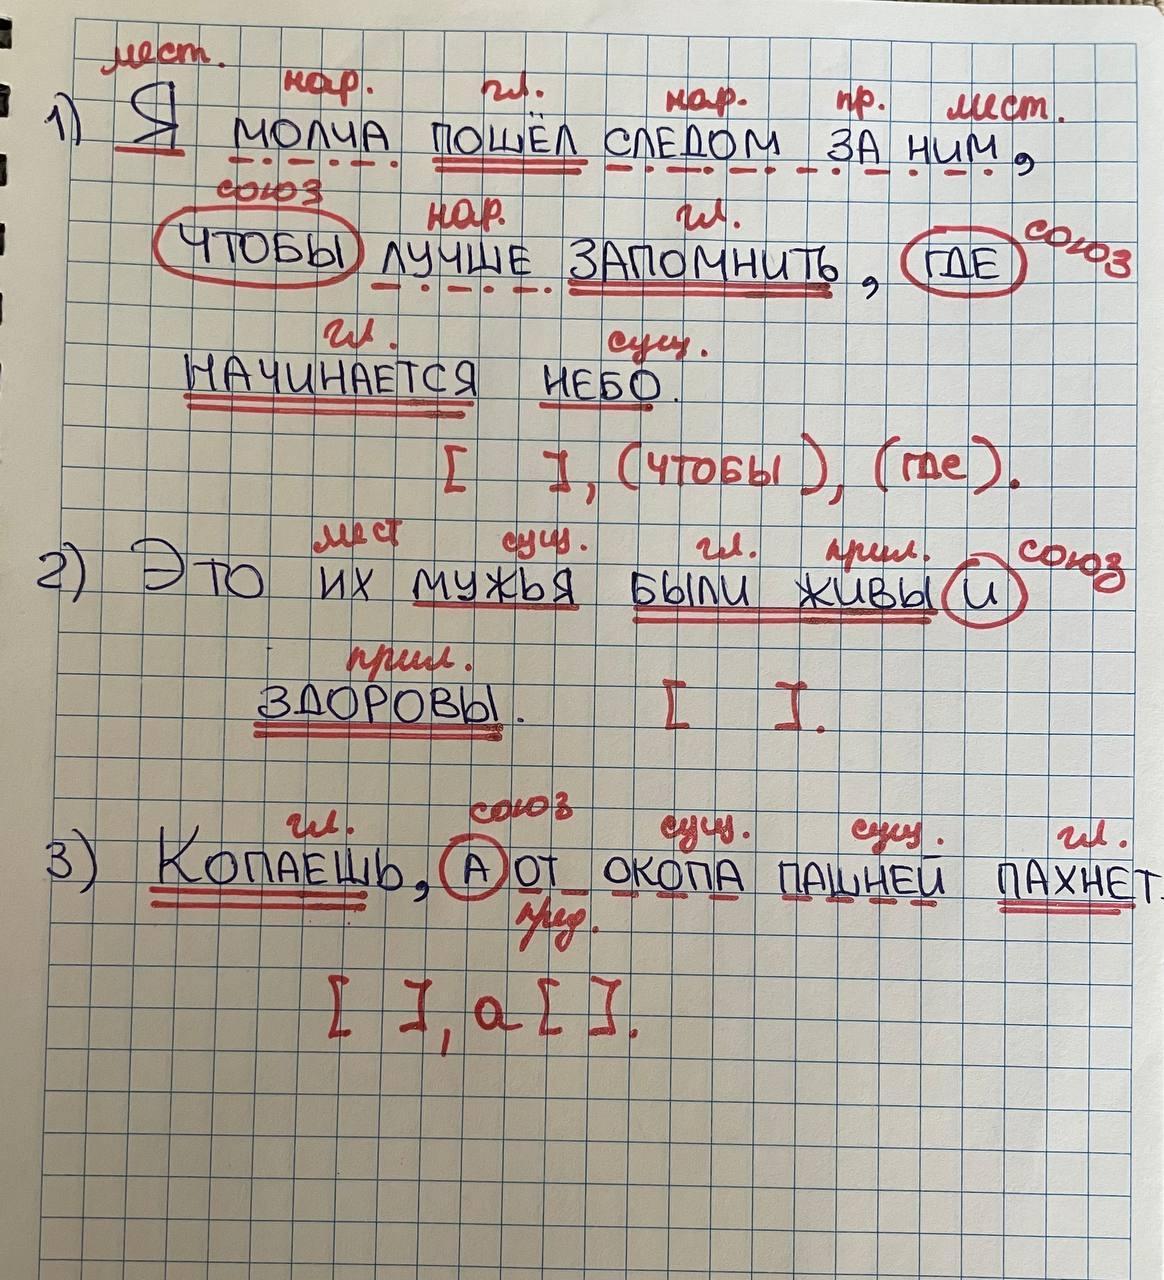 мест. нар. гл. нар. пр. мест.
1) Я МОЛЧА ПОШЁЛ СЛЕДОМ ЗА НИМ,
союз нар. гл. союз
ЧТОБЫ ЛУЧШЕ ЗАПОМНИТЬ, ГДЕ
гл. сущ.
НАЧИНАЕТСЯ НЕБО.
[ ], (чтобы), (где).
мест сущ. гл. прил. союз
2) Это ИХ МУЖЬЯ БЫЛИ ЖИВЫ И
прил.
ЗДОРОВЫ. [ ].
гл. союз сущ. сущ. гл.
3) КОПАЕШЬ, А ОТ ОКОПА ПАШНЕЙ ПАХНЕТ.
пред.
[ ], а [ ].